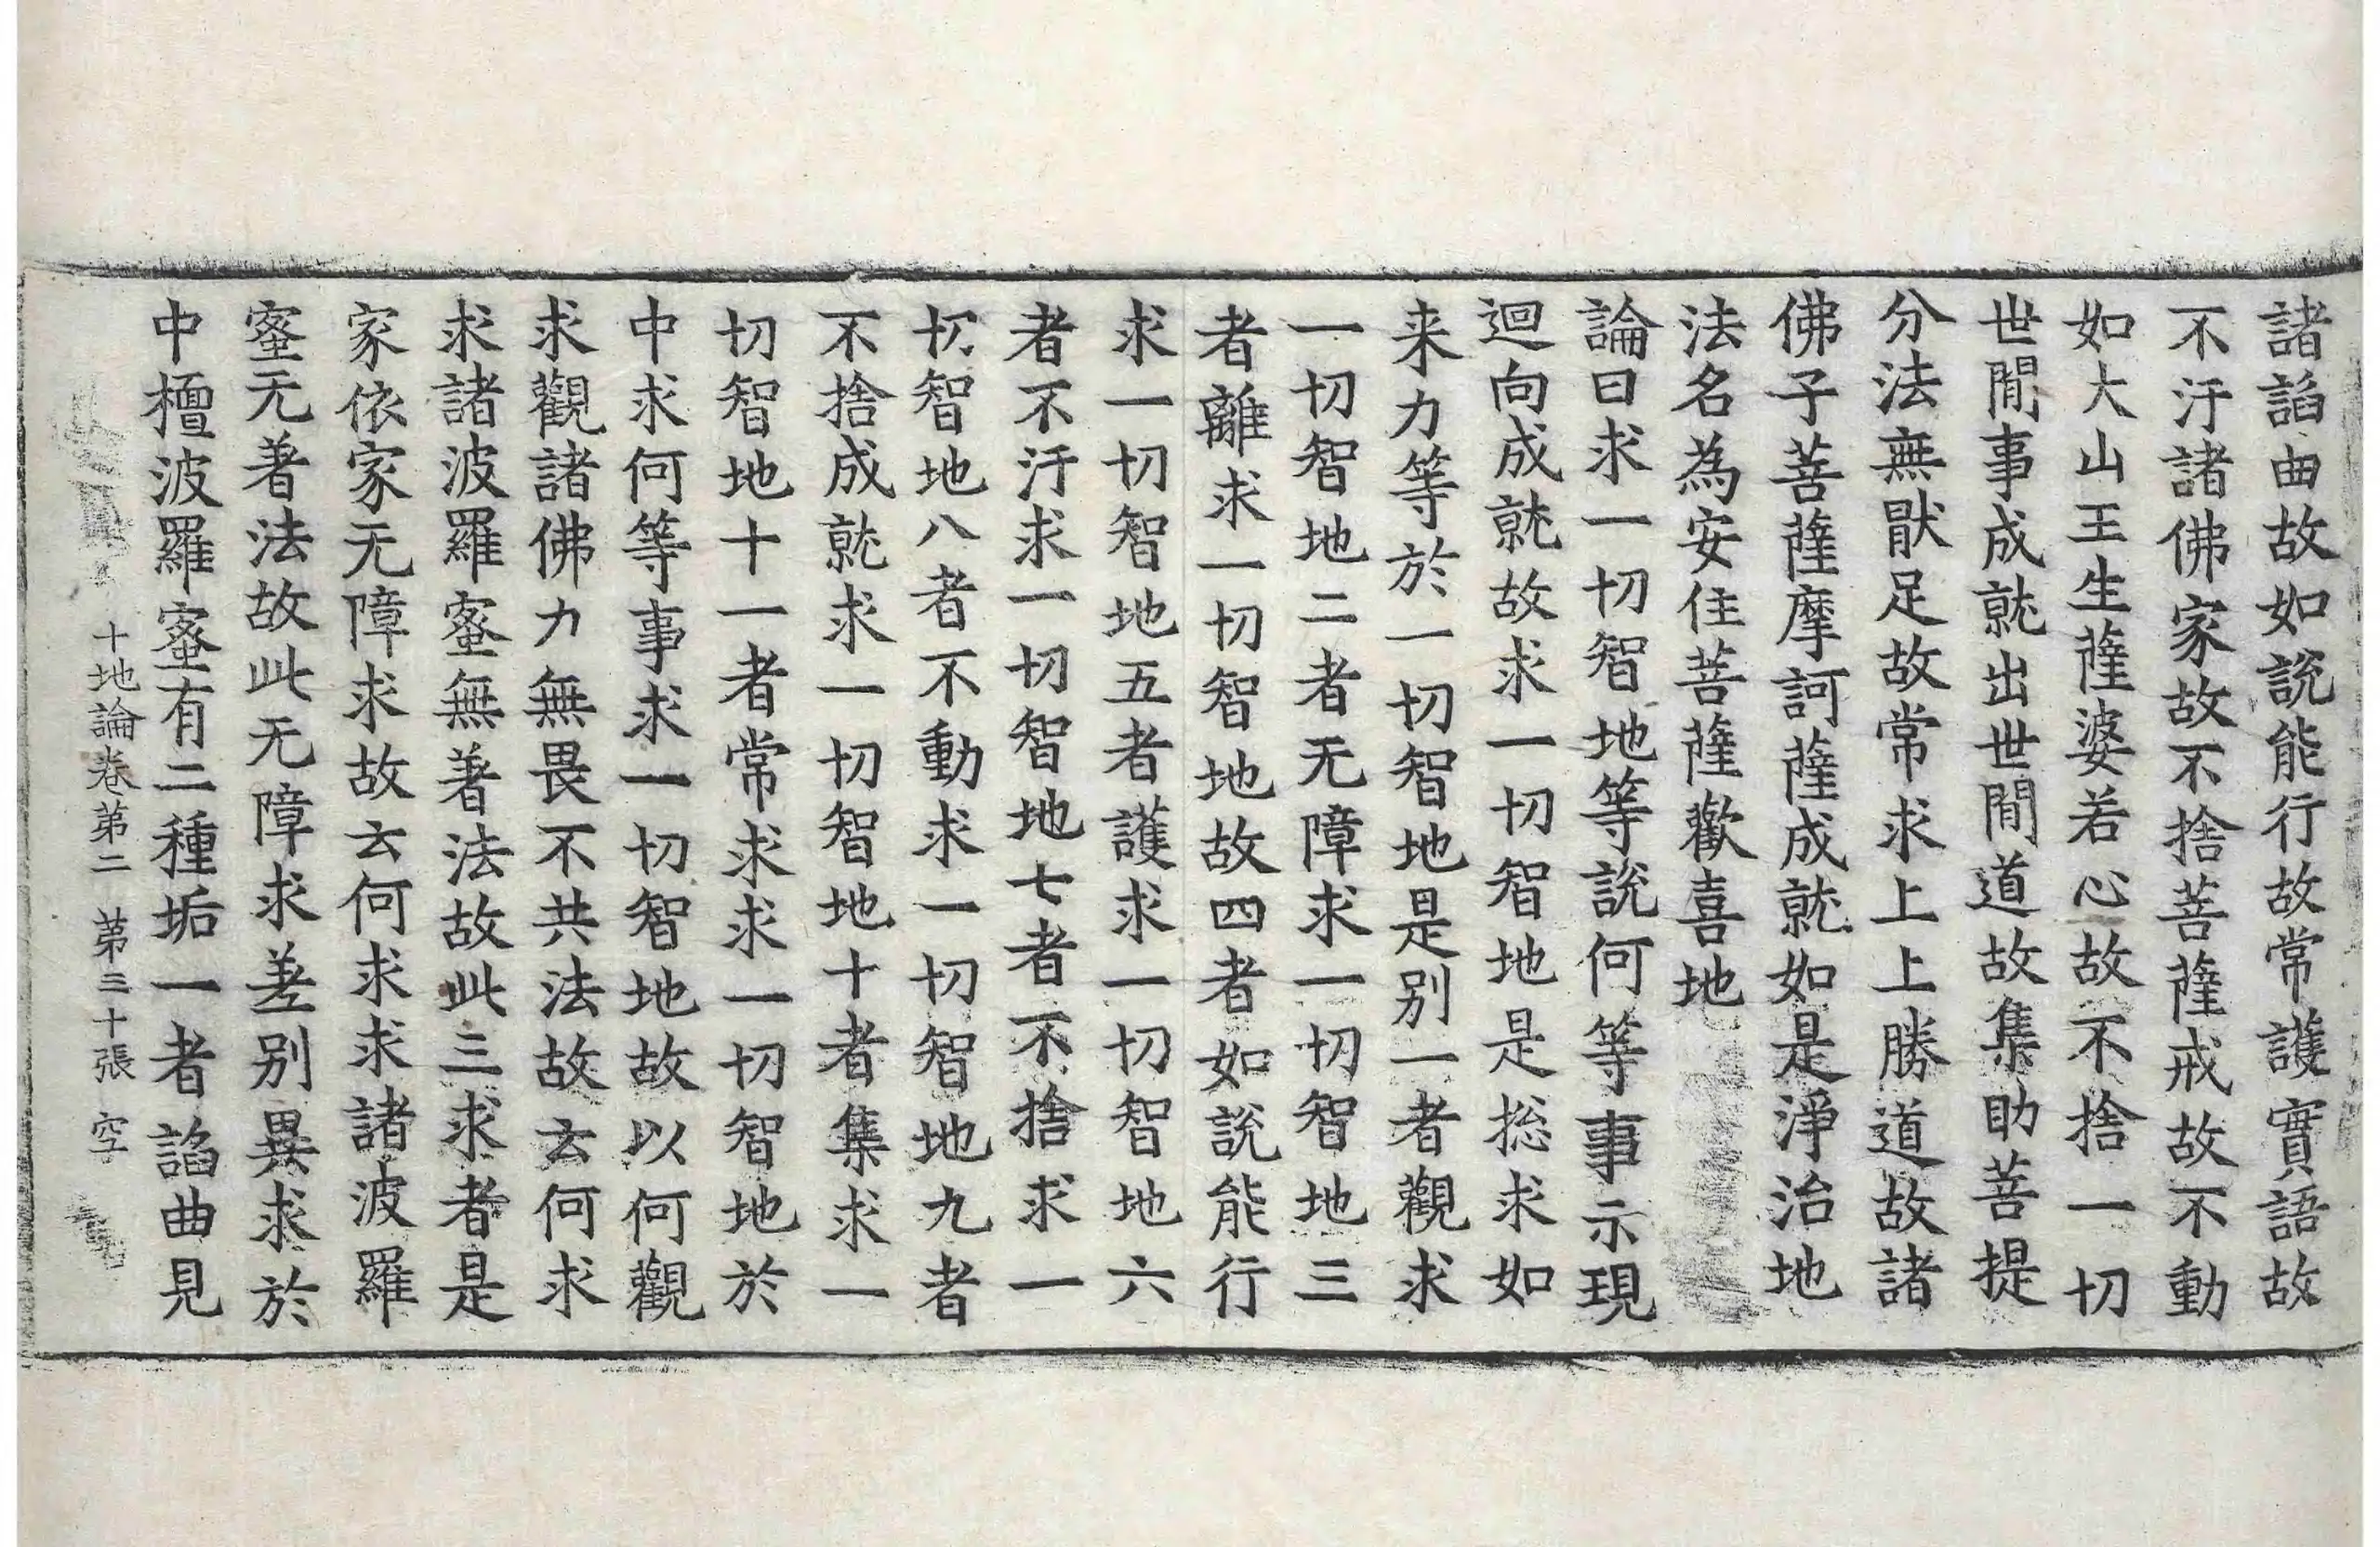 諸謟曲故如說能行故常護實語故
不汙諸佛家故不捨菩薩戒故不動
如大山王生薩婆若心故不捨一切
世閒事成就出世閒道故集助菩提
分法無猒足故常求上上勝道故諸
佛子菩薩摩訶薩成就如是淨治地
法名為安住菩薩歡喜地
論曰求一切智地等說何等事示現
迴向成就故求一切智地是捴求如
来力等於一切智地是別一者觀求
一切智地二者无障求一切智地三
者離求一切智地故四者如說能行
求一切智地五者護求一切智地六
者不汙求一切智地七者不捨求一
切智地八者不動求一切智地九者
不捨成就求一切智地十者集求一
切智地十一者常求求一切智地於
中求何等事求一切智地故以何觀
求觀諸佛力無畏不共法故云何求
求諸波羅蜜無著法故此三求者是
家依家无障求故云何求求諸波羅
蜜无著法故此无障求差别異求於
中檀波羅蜜有二種垢一者謟曲見
十地論卷第二 第三十張 空